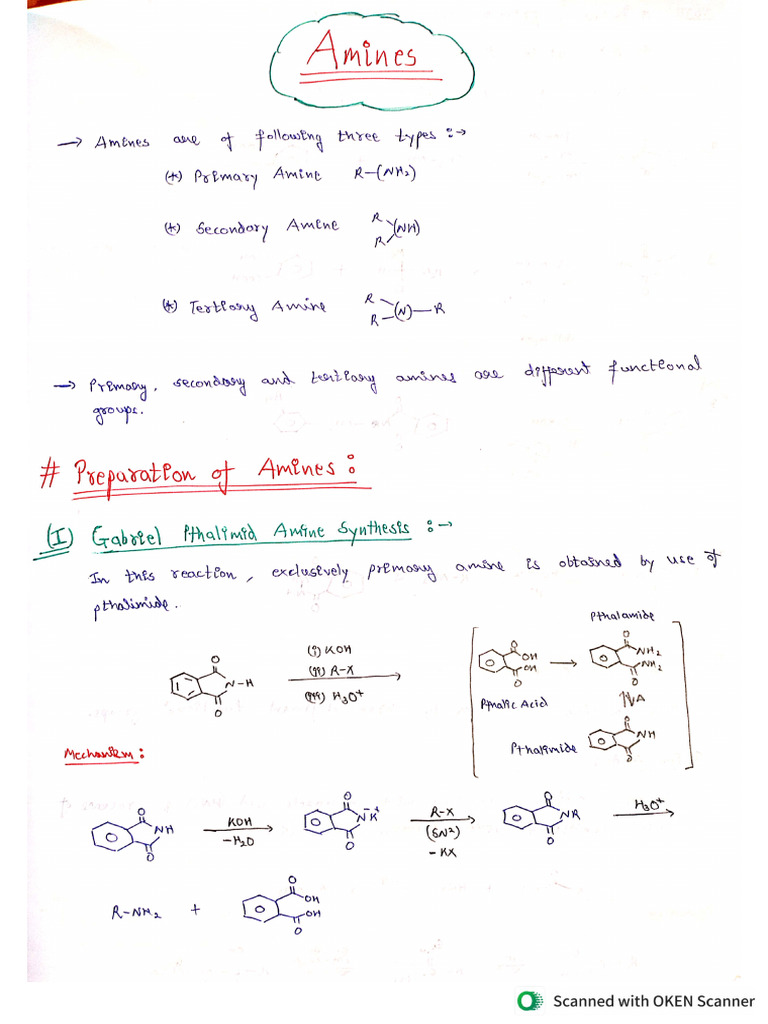 Amines
→ Amines are of following three types :→
(*) Primary Amine R–(NH₂)
(*) Secondary Amine R R (NH)
(*) Tertiary Amine R R (N)–R
→ Primary, secondary and tertiary amines are different functional
groups.
# Preparation of Amines :
(I) Gabriel Pthalimid Amine Synthesis :→
In this reaction, exclusively primary amine is obtained by use of
pthalimide.
Pthalamide
O O N–H (i) KOH (ii) R–X (iii) H₃O⁺ O OH OH O → O NH₂ NH₂ O
Pthalic Acid Δ
Pthalimide O NH O
Mechanism :
O NH O KOH –H₂O O N⁻K⁺ O R–X (SN²) –KX O NR O H₃O⁺
R–NH₂ + O OH OH O